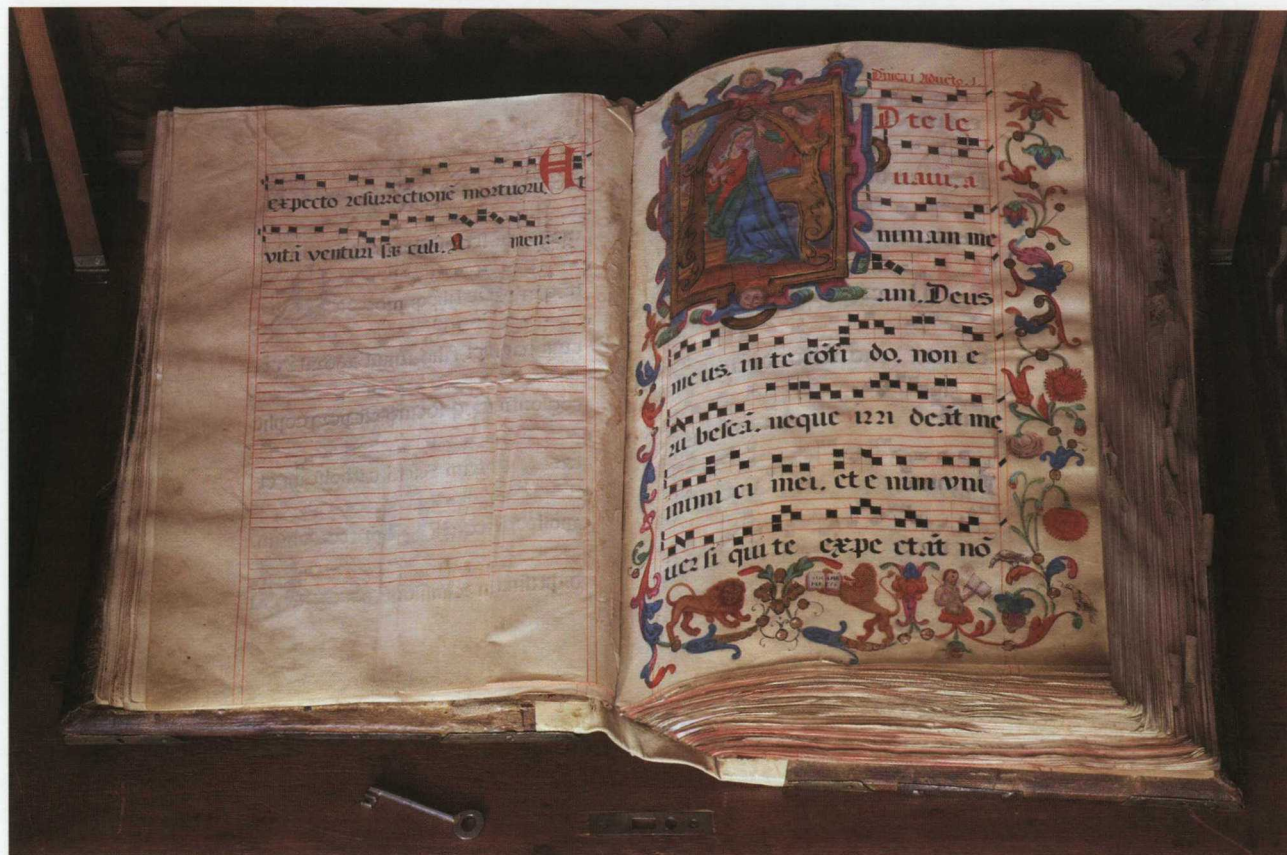 expecto resurrectionē mortuoru, Et
vitā venturi sæ culi. A men:
D te le
uaui, a
nimam me
am. Deus
me us, in te cōfi do, non e
ru bescā, neque irri deāt me
inimi ci mei, et e nim vni
uer si qui te expe ctāt nō